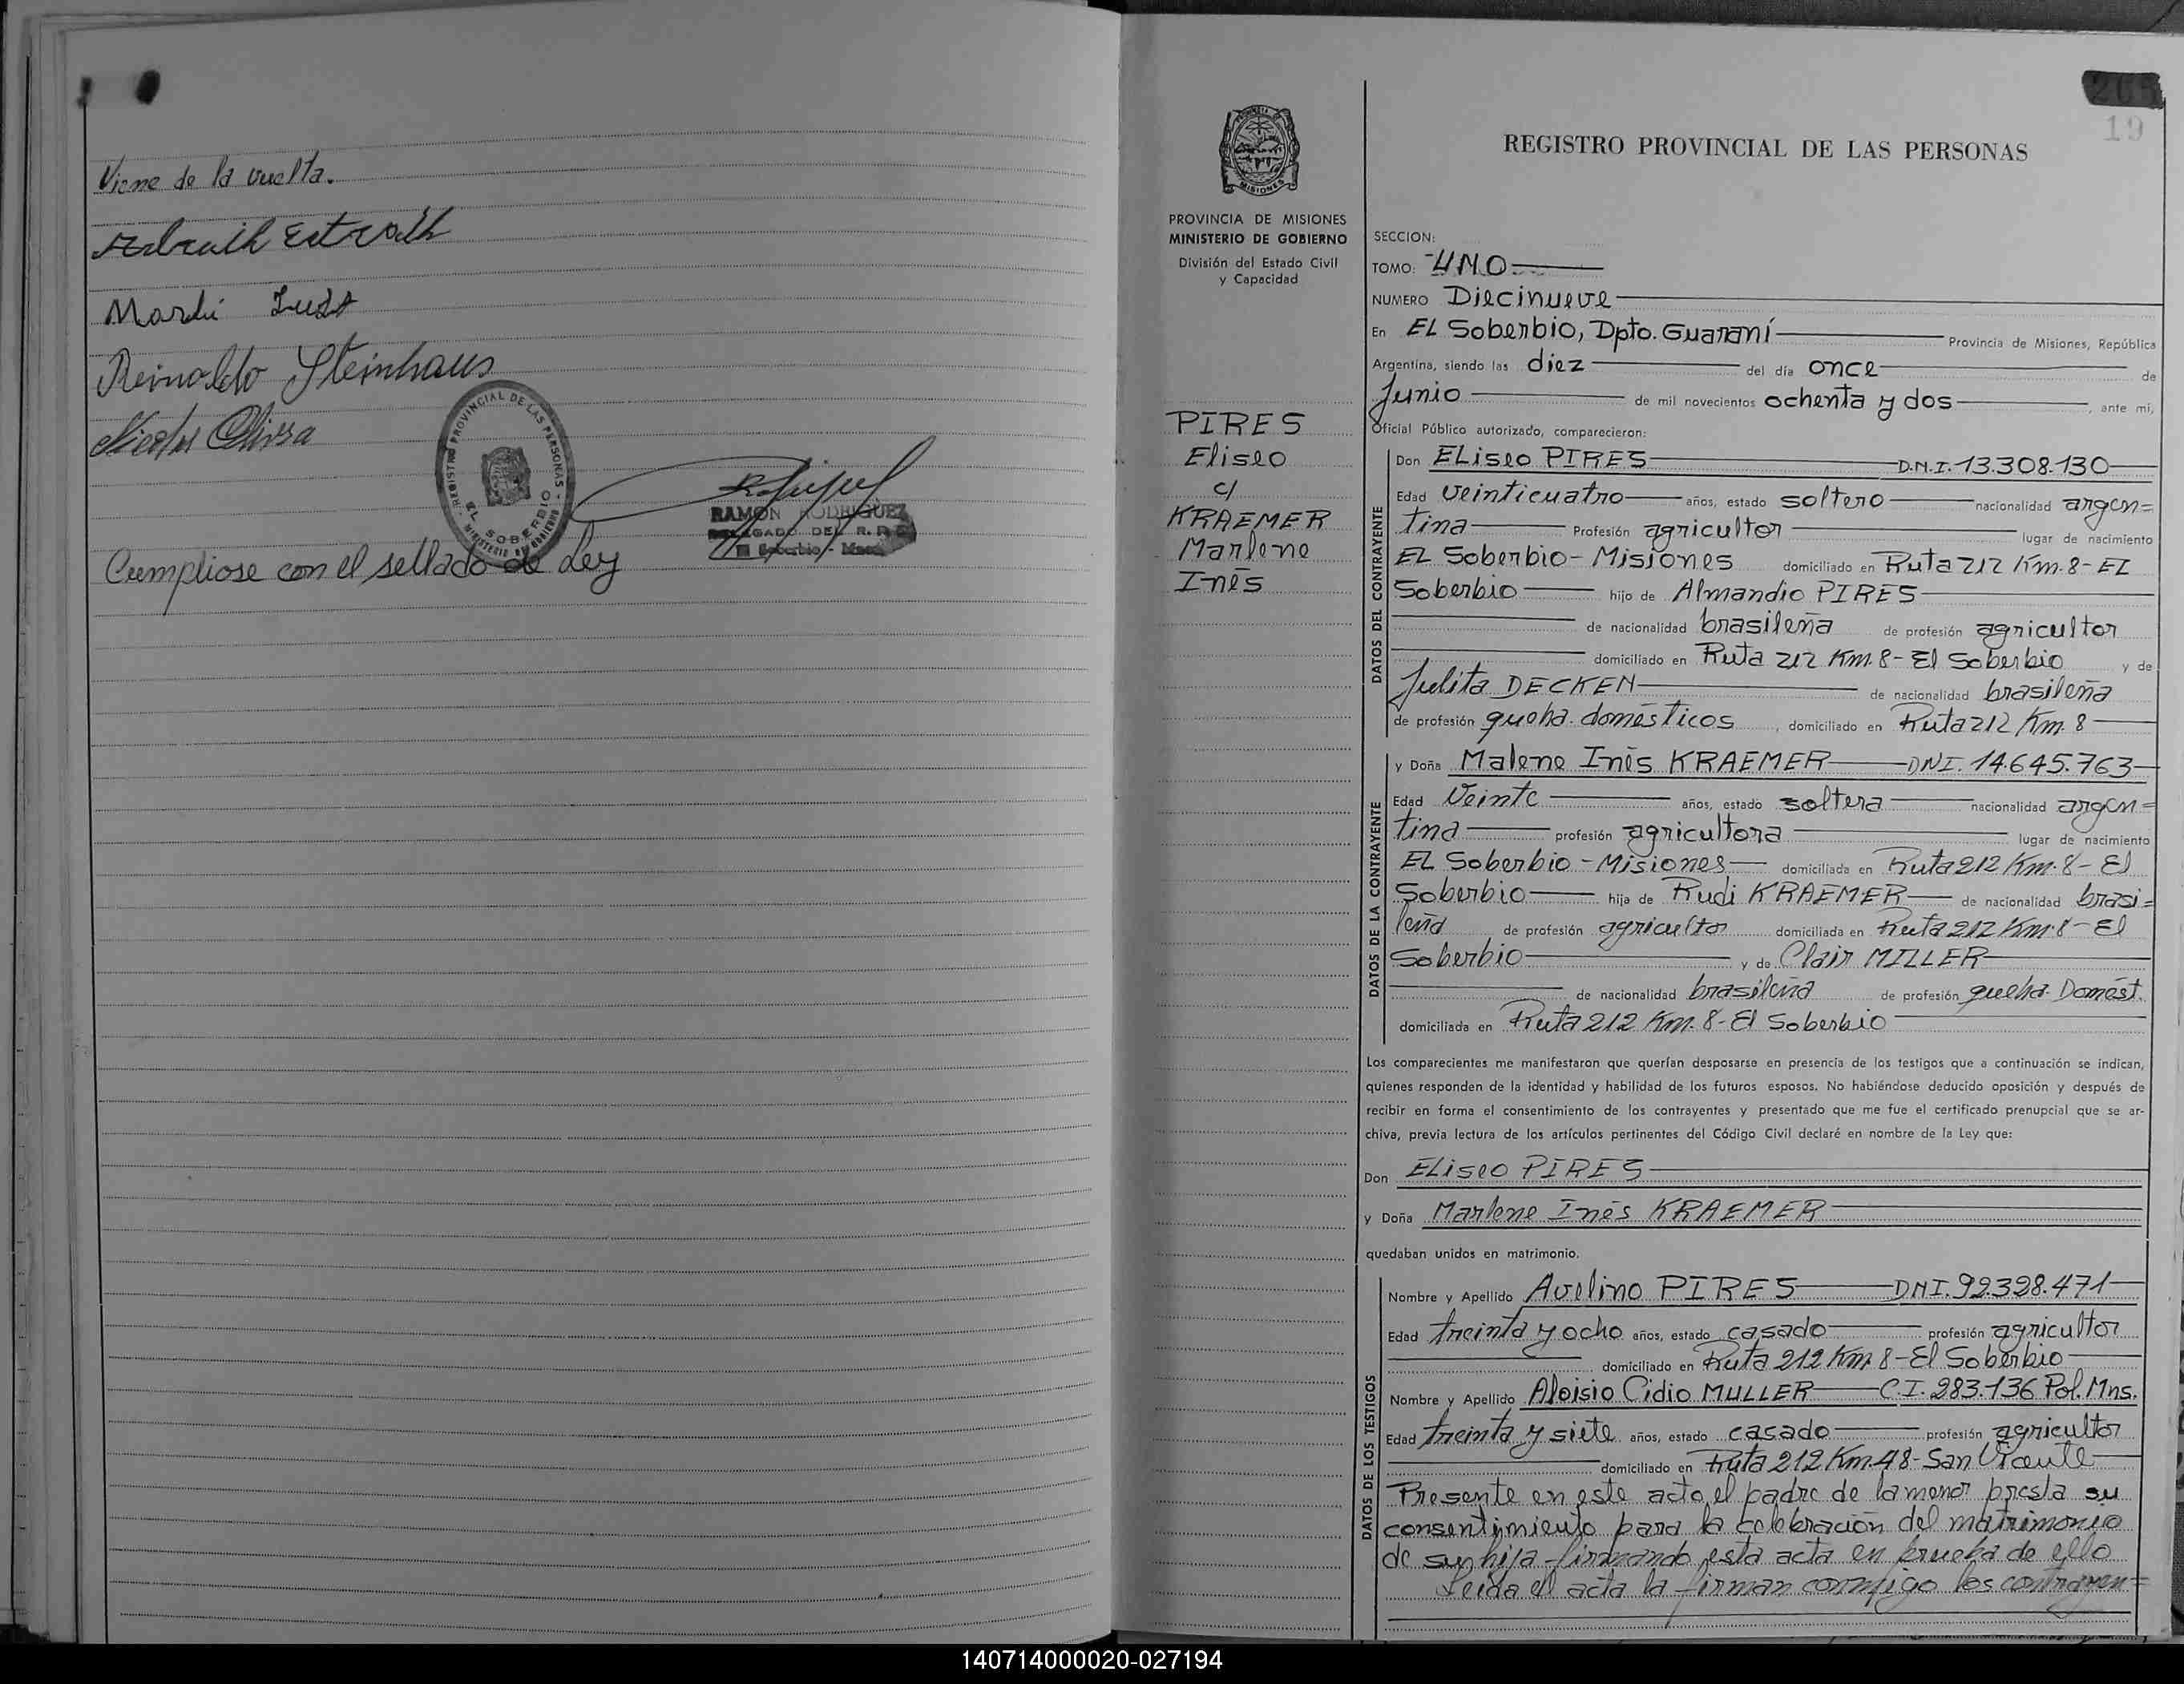 Viene de la vuelta.
Reinoldo Steinhaus
REGISTRO PROVINCIAL DE LAS PERSONAS
MINISTERIO DE GOBIERNO
EL SOBERBIO
RAMON RODRIGUEZ
DELEGADO DEL R.
El Soberbio - Mnes
Cumpliose con el sellado de Ley
205
19
PROVINCIA DE
MISIONES
PROVINCIA DE MISIONES
MINISTERIO DE GOBIERNO
División del Estado Civil
y Capacidad
PIRES
Eliseo
c/
KRAEMER
Marlene
Inés
REGISTRO PROVINCIAL DE LAS PERSONAS
SECCION:
TOMO: UNO
NUMERO Diecinueve
En EL Soberbio, Dpto. Guaraní Provincia de Misiones, República
Argentina, siendo las diez del día once de
Junio de mil novecientos ochenta y dos, ante mí,
Oficial Público autorizado, comparecieron:
DATOS DEL CONTRAYENTE
Don ELiseo PIRES D.N.I. 13.308.130
Edad Veinticuatro años, estado soltero nacionalidad argen=
tina Profesión agricultor lugar de nacimiento
EL Soberbio - Misiones domiciliado en Ruta 212 Km. 8 - El
Soberbio hijo de Almandio PIRES
de nacionalidad brasileña de profesión agricultor
domiciliado en Ruta 212 Km. 8 - El Soberbio y de
Julita DECKEN de nacionalidad brasileña
de profesión queha. domésticos, domiciliado en Ruta 212 Km. 8
DATOS DE LA CONTRAYENTE
y Doña Malene Inés KRAEMER DNI. 14.645.763
Edad Veinte años, estado soltera nacionalidad argen=
tina profesión agricultora lugar de nacimiento
EL Soberbio - Misiones domiciliada en Ruta 212 Km. 8 - El
Soberbio hija de Rudi KRAEMER de nacionalidad brasi=
leña de profesión agricultor domiciliada en Ruta 212 Km. 8 - El
Soberbio y de Clair MILLER
de nacionalidad brasileña de profesión queha. Domést.
domiciliada en Ruta 212 Km. 8 - El Soberbio
Los comparecientes me manifestaron que querían desposarse en presencia de los testigos que a continuación se indican,
quienes responden de la identidad y habilidad de los futuros esposos. No habiéndose deducido oposición y después de
recibir en forma el consentimiento de los contrayentes y presentado que me fue el certificado prenupcial que se ar-
chiva, previa lectura de los artículos pertinentes del Código Civil declaré en nombre de la Ley que:
Don ELiseo PIRES
y Doña Marlene Inés KRAEMER
quedaban unidos en matrimonio.
DATOS DE LOS TESTIGOS
Nombre y Apellido Avelino PIRES DNI. 92.328.471
Edad treinta y ocho años, estado casado profesión agricultor
domiciliado en Ruta 212 Km 8 - El Soberbio
Nombre y Apellido Aloisio Cidio MULLER C.I. 283.136 Pol. Mns.
Edad treinta y siete años, estado casado profesión agricultor
domiciliado en Ruta 212 Km. 48 - San Vicente
Presente en este acto el padre de la menor presta su
consentimiento para la celebración del matrimonio
de su hija firmando esta acta en prueba de ello
Leida el acta la firman conmigo los contrayen=
140714000020-027194